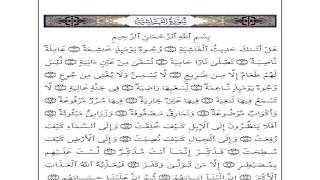 سُورَةُ الْغَاشِيَةِ
بِسْمِ اللَّهِ الرَّحْمَٰنِ الرَّحِيمِ
هَلْ أَتَىٰكَ حَدِيثُ الْغَٰشِيَةِ ۝ وُجُوهٌ يَوْمَئِذٍ خَٰشِعَةٌ ۝ عَامِلَةٌ
نَّاصِبَةٌ ۝ تَصْلَىٰ نَارًا حَامِيَةً ۝ تُسْقَىٰ مِنْ عَيْنٍ ءَانِيَةٍ ۝ لَّيْسَ
لَهُمْ طَعَامٌ إِلَّا مِن ضَرِيعٍ ۝ لَّا يُسْمِنُ وَلَا يُغْنِي مِن جُوعٍ ۝
وُجُوهٌ يَوْمَئِذٍ نَّاعِمَةٌ ۝ لِّسَعْيِهَا رَاضِيَةٌ ۝ فِي جَنَّةٍ عَالِيَةٍ ۝
لَّا تَسْمَعُ فِيهَا لَٰغِيَةً ۝ فِيهَا عَيْنٌ جَارِيَةٌ ۝ فِيهَا سُرُرٌ مَّرْفُوعَةٌ ۝
وَأَكْوَابٌ مَّوْضُوعَةٌ ۝ وَنَمَارِقُ مَصْفُوفَةٌ ۝ وَزَرَابِيُّ مَبْثُوثَةٌ ۝
أَفَلَا يَنظُرُونَ إِلَى الْإِبِلِ كَيْفَ خُلِقَتْ ۝ وَإِلَى السَّمَاءِ كَيْفَ
رُفِعَتْ ۝ وَإِلَى الْجِبَالِ كَيْفَ نُصِبَتْ ۝ وَإِلَى الْأَرْضِ كَيْفَ
سُطِحَتْ ۝ فَذَكِّرْ إِنَّمَا أَنتَ مُذَكِّرٌ ۝ لَّسْتَ عَلَيْهِم
بِمُصَيْطِرٍ ۝ إِلَّا مَن تَوَلَّىٰ وَكَفَرَ ۝ فَيُعَذِّبُهُ اللَّهُ الْعَذَابَ
الْأَكْبَرَ ۝ إِنَّ إِلَيْنَا إِيَابَهُمْ ۝ ثُمَّ إِنَّ عَلَيْنَا حِسَابَهُم ۝